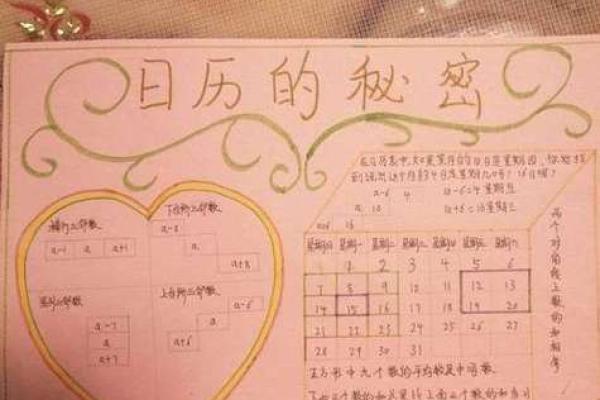 日历的秘密
横行三邻数
a-1 a a+1
竖列三邻数
a-7
a
a+7
下右斜三邻数
a-8
a
a+8
上右斜三邻数
a-6
a
a+6
在日历表中,如果某月的10日是星期四,你能找
到这个月的4日是星期几吗?16日呢?
a-6 4 10-6=4 星期五
a 10 a+6=16 星期三
a+6 16
星期日 星期一 星期二 星期三 星期四 星期五 星期六
1 2 3 4 5 6
7 8 9 10 11 12 13
14 15 16 17 18 19 20
21 22 23 24 25 26 27
28 29 30 31
正方形中九个数的平均数是中间数。
两个对角线上数的和相等